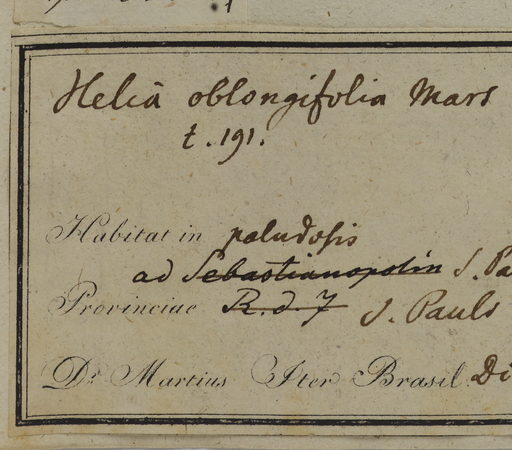 Helia oblongifolia Mars
t. 191.
Habitat in paludosis
ad Sebastianopolin S. Pa
Provinciae R. d J S. Pauli
Dr. Martius Iter Brasil. Di